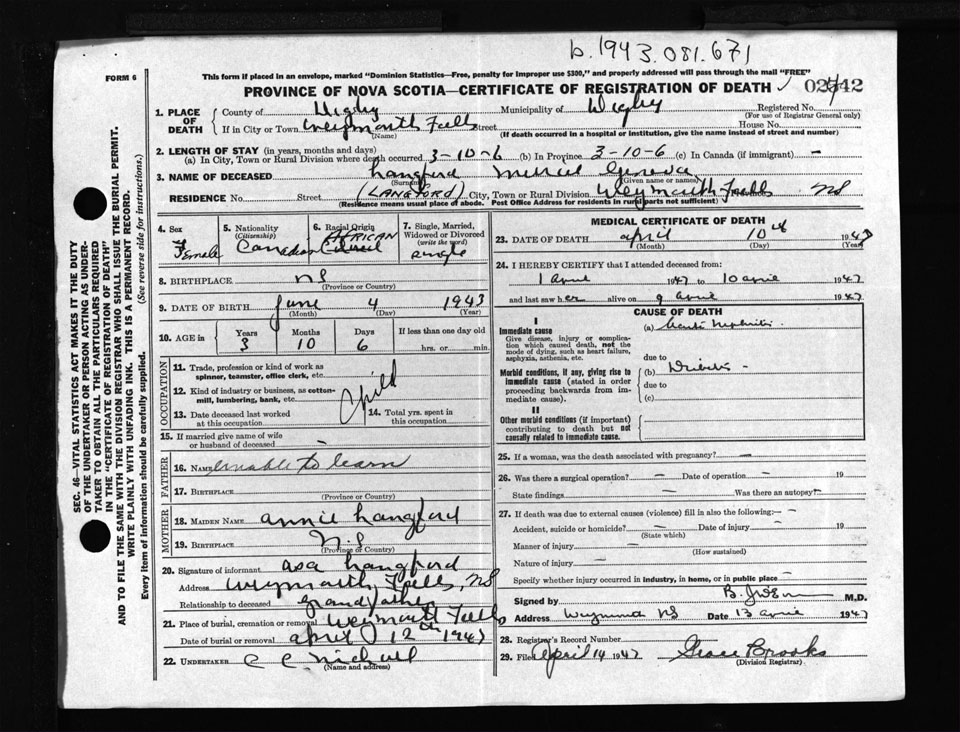 b. 1943.081.671
FORM 6
This form if placed in an envelope, marked "Dominion Statistics—Free, penalty for improper use $300," and properly addressed will pass through the mail "FREE"
PROVINCE OF NOVA SCOTIA—CERTIFICATE OF REGISTRATION OF DEATH
1. PLACE OF DEATH
County of Digby Municipality of Digby Registered No.
(For use of Registrar General only)
If in City or Town Weymouth Falls Street House No.
(Name) (If death occurred in a hospital or institution, give the name instead of street and number)
2. LENGTH OF STAY (in years, months and days)
(a) In City, Town or Rural Division where death occurred 3-10-6 (b) In Province 3-10-6 (c) In Canada (if immigrant) —
3. NAME OF DECEASED Langford Geneva
(Surname) (Given name or names)
RESIDENCE No. Street (LANGFORD) City, Town or Rural Division Weymouth Falls NS
(Residence means usual place of abode. Post Office Address for residents in rural parts not sufficient)
4. Sex Female
5. Nationality (Citizenship) Canadian
6. Racial Origin AFRICAN Colored
7. Single, Married, Widowed or Divorced (write the word) single
8. BIRTHPLACE NS
(Province or Country)
9. DATE OF BIRTH June 4 1943
(Month) (Day) (Year)
10. AGE in Years Months Days If less than one day old
3 10 6 hrs. or min.
OCCUPATION
11. Trade, profession or kind of work as spinner, teamster, office clerk, etc.
12. Kind of industry or business, as cotton-mill, lumbering, bank, etc.
Child
13. Date deceased last worked at this occupation
14. Total yrs. spent in this occupation
15. If married give name of wife or husband of deceased —
FATHER
16. NAME unable to learn
17. BIRTHPLACE
(Province or Country)
MOTHER
18. MAIDEN NAME Annie Langford
19. BIRTHPLACE N.S
(Province or Country)
20. Signature of informant Asa Langford
Address Weymouth Falls, NS
Relationship to deceased grandfather
21. Place of burial, cremation or removal Weymouth Falls
Date of burial or removal April 12th 1947
22. UNDERTAKER
(Name and address)
MEDICAL CERTIFICATE OF DEATH
23. DATE OF DEATH April 10th 1947
(Month) (Day) (Year)
24. I HEREBY CERTIFY that I attended deceased from:
1 April 1947 to 10 April 1947
and last saw her alive on 9 April 1947
CAUSE OF DEATH
I
Immediate cause (a) Nephritis
Give disease, injury or complication which caused death, not the mode of dying, such as heart failure, asphyxia, asthenia, etc.
due to
Morbid conditions, if any, giving rise to immediate cause (stated in order proceeding backwards from immediate cause).
(b)
due to
(c)
II
Other morbid conditions (if important) contributing to death but not causally related to immediate cause.
25. If a woman, was the death associated with pregnancy? —
26. Was there a surgical operation? — Date of operation — 19
State findings — Was there an autopsy? —
27. If death was due to external causes (violence) fill in also the following:—
Accident, suicide or homicide? — Date of injury — 19
(State which)
Manner of injury —
(How sustained)
Nature of injury —
Specify whether injury occurred in industry, in home, or in public place —
Signed by M.D.
Address NS Date 13 April 1947
28. Registrar's Record Number
29. Filed April 14 1947 Grace Brooks
(Division Registrar)
SEC. 46—VITAL STATISTICS ACT MAKES IT THE DUTY
OF THE UNDERTAKER OR PERSON ACTING AS UNDERTAKER TO OBTAIN ALL THE PARTICULARS REQUIRED
IN THE "CERTIFICATE OF REGISTRATION OF DEATH"
AND TO FILE THE SAME WITH THE DIVISION REGISTRAR WHO SHALL ISSUE THE BURIAL PERMIT.
WRITE PLAINLY WITH UNFADING INK. THIS IS A PERMANENT RECORD.
Every item of information should be carefully supplied. (See reverse side for instructions.)